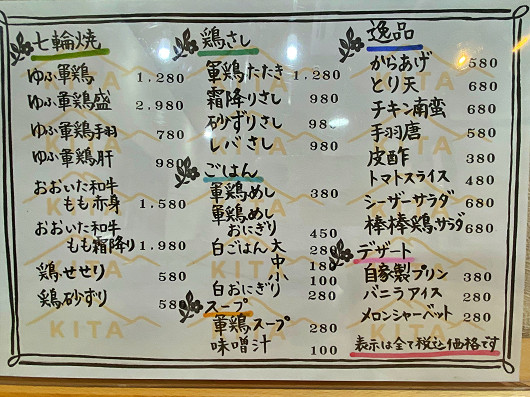 七輪焼
ゆふ軍鶏 1,280
ゆふ軍鶏盛 2,980
ゆふ軍鶏手羽 780
ゆふ軍鶏肝 980
おおいた和牛
もも赤身 1,580
おおいた和牛
もも霜降り 1,980
鶏せせり 580
鶏砂ずり 580
鶏さし
軍鶏たたき 1,280
霜降りさし 980
砂ずりさし 980
レバさし 980
ごはん
軍鶏めし 380
軍鶏めし
おにぎり 450
白ごはん 大 280
中 180
小 100
白おにぎり 280
スープ
軍鶏スープ 280
味噌汁 100
逸品
からあげ 580
とり天 680
チキン南蛮 680
手羽唐 580
皮酢 380
トマトスライス 480
シーザーサラダ 680
棒棒鶏サラダ 680
デザート
自家製プリン 380
バニラアイス 280
メロンシャーベット 280
表示は全て税込価格です
KITA
KITA
KITA
KITA
KITA
KITA